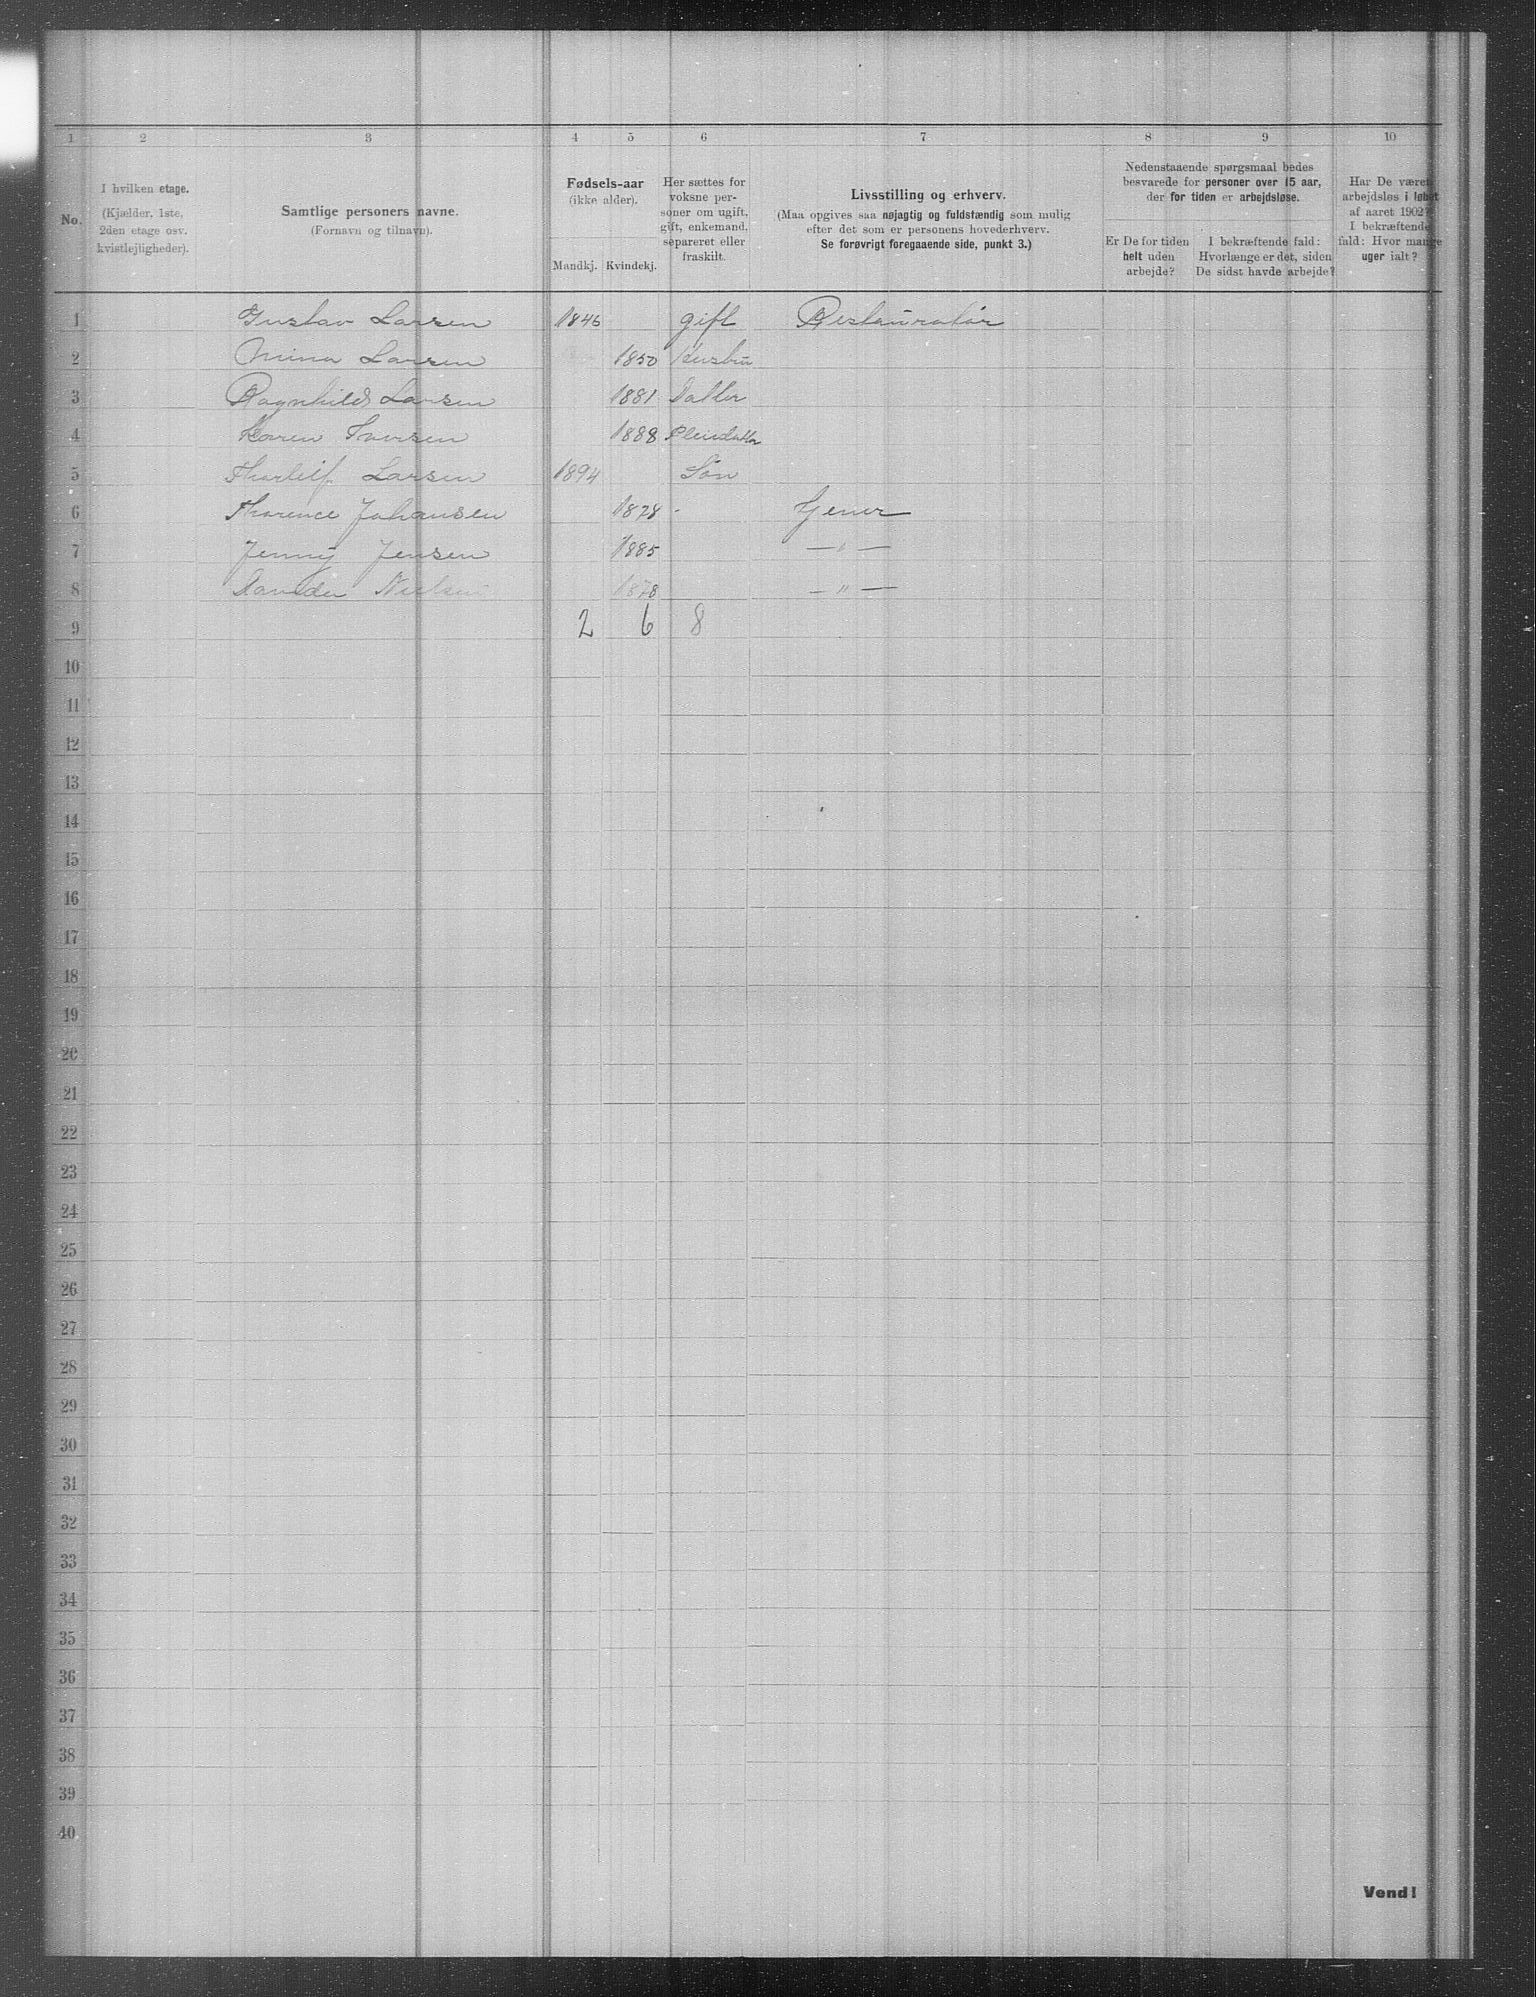 1 2 3 4 5 6 7 8 9 10
No.
I hvilken etage.
(Kjælder, 1ste,
2den etage osv.
kvistlejligheder).
Samtlige personers navne.
(Fornavn og tilnavn).
Fødsels-aar
(ikke alder).
Mandkj. Kvindekj.
Her sættes for
voksne per-
soner om ugift,
gift, enkemand,
separeret eller
fraskilt.
Livsstilling og erhverv.
(Maa opgives saa nøjagtig og fuldstændig som mulig
efter det som er personens hovederhverv.
Se forøvrigt foregaaende side, punkt 3.)
Nedenstaaende spørgsmaal bedes
besvarede for personer over 15 aar,
der for tiden er arbejdsløse.
Er De for tiden
helt uden
arbejde?
I bekræftende fald:
Hvorlænge er det, siden
De sidst havde arbejde?
Har De været
arbejdsløs i løbet
af aaret 1902?
I bekræftende
fald: Hvor mange
uger ialt?
1 Gustav Larsen 1846 gift Restauratør
2 Mina Larsen 1850 Husbru
3 Ragnhild Larsen 1881 Datter
4 Karen Iversen 1888 Pleiedatter
5 Thorleif Larsen 1894 Søn
6 Thorence Johansen 1878 - Gener
7 Jenny Jensen 1885 — " —
8 Nielsen 1878 — " —
9 2 6 8
10
11
12
13
14
15
16
17
18
19
20
21
22
23
24
25
26
27
28
29
30
31
32
33
34
35
36
37
38
39
40
Vend!